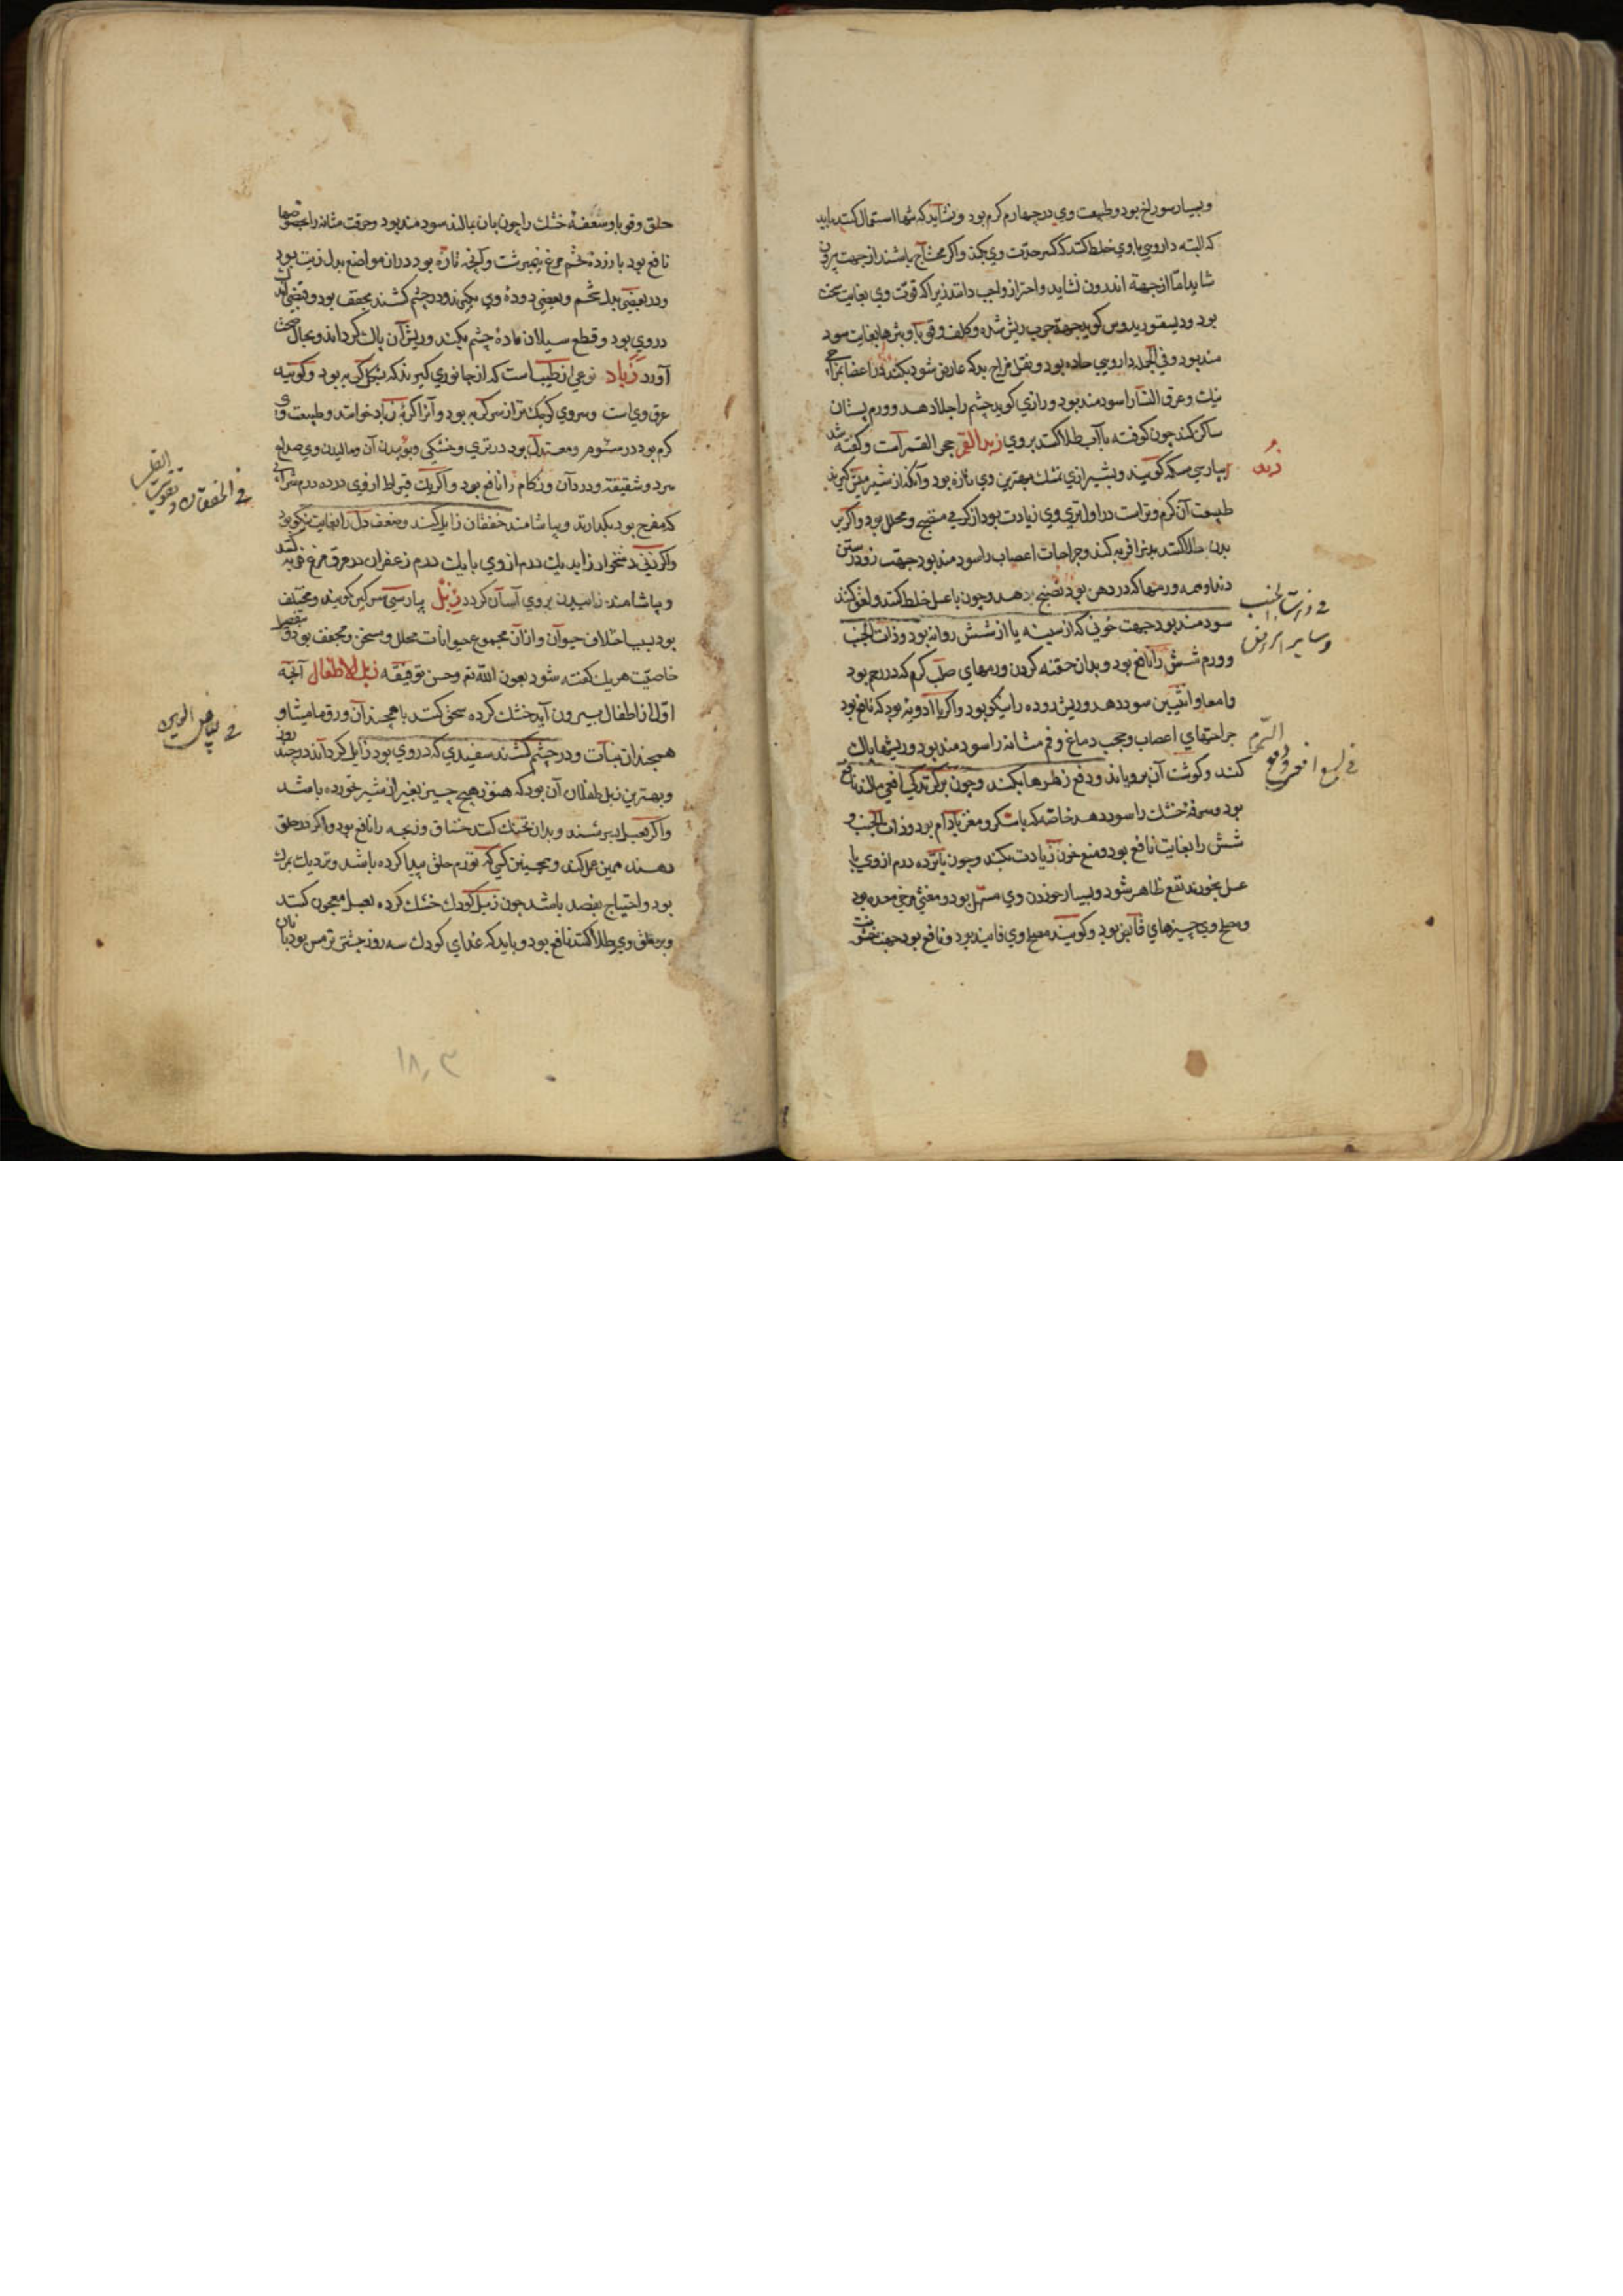 وبسیار سوراخ بود وطبیعت وی در چهارم کرم بود ونشاید که تنها استعمال کنند باید
که البته داروی باوی خلط کنند که کسر حدّت وی بکند واکر محتاج باشند از جهت بیرون
شاید امّا از جهة اندرون نشاید واحتراز واجب دانند زیراکه قوّت وی بغایت سخت
بود ودیسقوریدوس کوید جهة جرب ریش شده وکلف وقوبا وبثرها بغایت سود
مند بود وفی الجمله داروی حاده بود ونقل مزاج بد که عارض شود بکند در اعضا بمزاجی
نیک وعرق النسا را سودمند بود ورازی کوید چشم را جلا دهد وورم پستان
ساکن کند چون کوفته با آب طلا کنند بروی زبد القمر حجر القمر است وکفته شد
زبد
بپارسی مسکه کویند وبشیرازی نمشک بهترین وی تازه بود وآنکه از شیر میش کیرند
طبیعت آن کرم وتر است در اول تری وی زیادت بود از کرمی منضج ومحلل بود واکر بر
بدن طلا کنند بدنرا فربه کند وجراحات اعصاب را سودمند بود جهت زود رستن
دندان وهمه ورمها که در دهن بود نضج بدهد وچون با عسل خلط کنند ولعق کنند
فی ذات الجنب
وسایر امراض
سودمند بود جهت خونی که از سینه یا از شش روانه بود وذات الجنب
وورم شش را نافع بود وبدان حقنه کردن ورمهای صلب کرم که در رحم بود
وامعا وانثیین سود دهد وریش روده را نیکو بود واکر با ادویه بود که نافع بود
جراحتهای اعصاب وحجب دماغ وفم مثانه را سودمند بود وریشها پاک
فی لسع افعی ودفع السّم
کنند وکوشت آن برویاند ودفع زهرها بکند وچون بر کزیدکی افعی مالند نافع
بود وسرفه خشک را سود دهد خاصّه که با شکر ومغز بادام بود وذات الجنب و
شش را بغایت نافع بود ومنع خون زیادت بکند وچون پانزده درم از وی با
عسل بخورند نفع ظاهر شود وبسیار خوردن وی مسهل بود ومغثی ومرخی معده بود
ومصلح وی چیزهای قابض بود وکویند مصلح وی فانیذ بود ونافع بود جهت خشونت
حلق وقوبا وسعفهٔ خشک را چون بان بمالند سودمند بود وحرقت مثانه را
نافع بود با زرده تخم مرغ نیمبرشت وآنچه تازه بود در آن مواضع بدل زیت بود
ودر بعضی بدل شحم وبعضی دودهٔ وی بکیرند ودر چشم کشند مجفف بود وقبضی اندک
در وی بود وقطع سیلان مادهٔ چشم بکند وریش آن پاک کرداند وبحال صحت
آورد زباد نوعی از طیب است که از جانوری کیرند که بشکل کربه بود وکویند
عرق وی است وسر وی کوچکتر از سر کربه بود وآنرا کربهٔ زباد خوانند وطبیعت وی
کرم بود در سوم ومعتدل بود در تری وخشکی وبوئیدن آن ومالیدن وی صداع
سرد وشقیقه ودرد آن وزکام را نافع بود واکر یک قیراط از وی در ده درم شرابی
فی الخفقان وتقویت القلب
که مفرح بود بکدازند وبیاشامند خفقان زایل کند وضعف دل را بغایت نیکو بود
واکر زنی دشخوار زاید یک درم از وی با یک درم زعفران در مرق مرغ فربه کنند
وبیاشامند زاییدن بروی آسان کردد زبل بپارسی سرکین کویند ومختلف
بود بسبب اختلاف حیوان واز آن مجموع حیوانات محلل ومسخن ومجفف بود و
خاصیّت هر یک کفته شود بعون اللّه تم وحسن توفیقه زبل الاطفال آنچه
اوّل از اطفال بیرون آید خشک کرده سحق کنند با همچند آن ورق مامیثا و
فی بیاض العین
همچند آن نبات ودر چشم کشند سفیدی که در وی بود زایل کرداند در چند روز
وبهترین زبل طفلان آن بود که هنوز هیچ چیز بغیر از شیر نخورده باشد
واکر بعسل بسرشند وبدان تحنک کنند خناق وذبحه را نافع بود واکر در حلق
دهند همین عمل کند وهمچنین کسی که تورم حلق پیدا کرده باشد ونزدیک بمرک
بود واحتیاج بفصد باشد چون زبل کودک خشک کرده بعسل معجون کنند
وبر حلق وی طلا کنند نافع بود وباید که غذای کودک سه روز پیشتر ترمس بود با نان
١٨٣